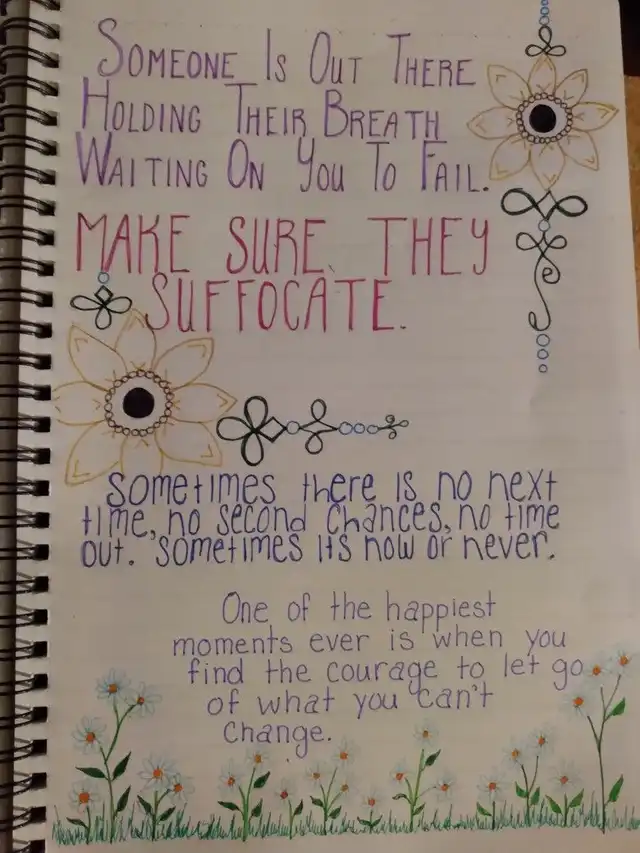 SOMEONE IS OUT THERE
HOLDING THEIR BREATH
WAITING ON YOU TO FAIL.
MAKE SURE THEY
SUFFOCATE.
Sometimes there is no next
time, no second chances, no time
out. Sometimes its now or never.
One of the happiest
moments ever is when you
find the courage to let go
of what you can't
change.